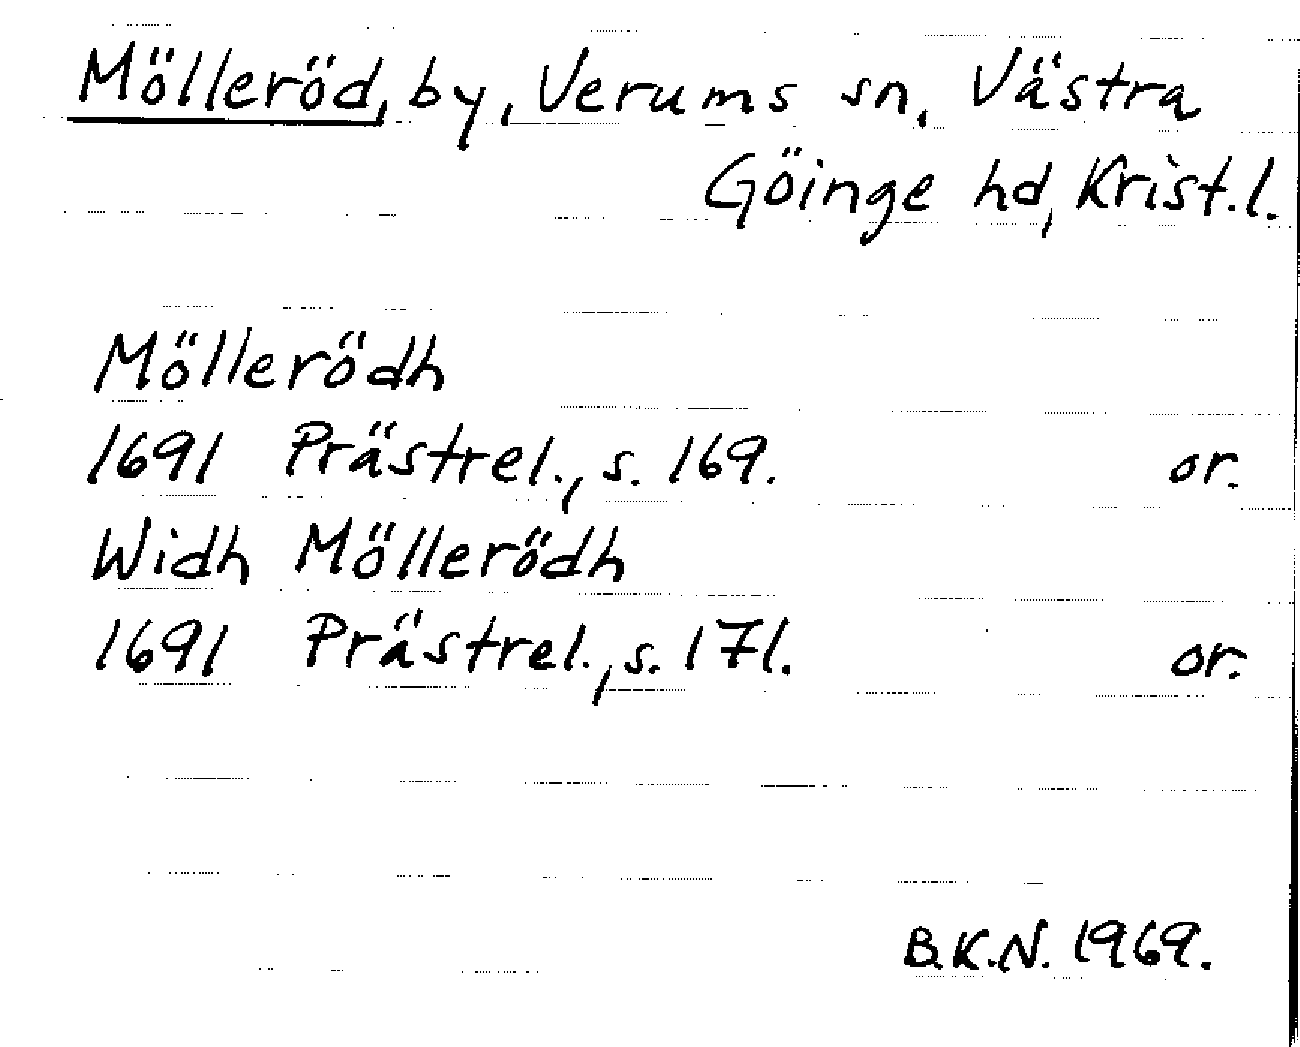 Mölleröd, by, Verums sn, Västra
Göinge hd, Krist.l.
Möllerödh
1691 Prästrel., s. 169. or.
Widh Möllerödh
1691 Prästrel., s. 171. or.
B.K.N. 1969.